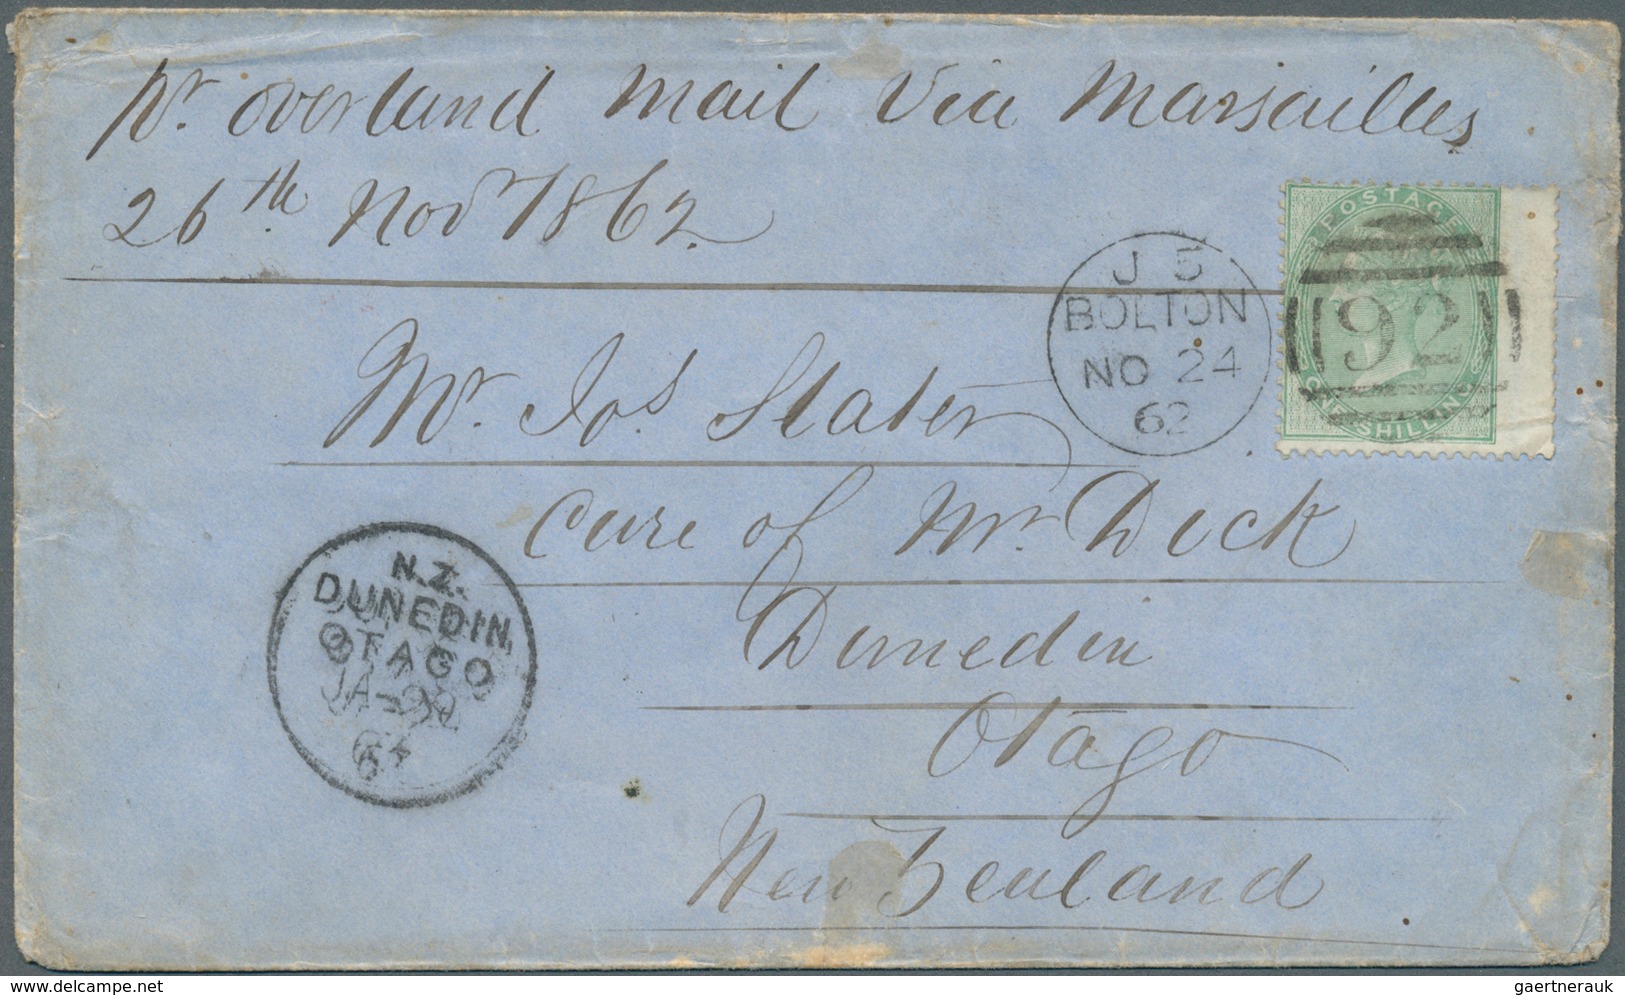 pr. overland mail Via Marsailles
26th Novr 1862.
POSTAGE
J 5
BOLTON
NO 24
62
92
SHILLING
Mr. Jos Slater
Care of Mr. Dick
N.Z.
DUNEDIN
OTAGO
JA
63
Dunedin
Otago
New Zealand
www.delcampe.net
gaertnerauk